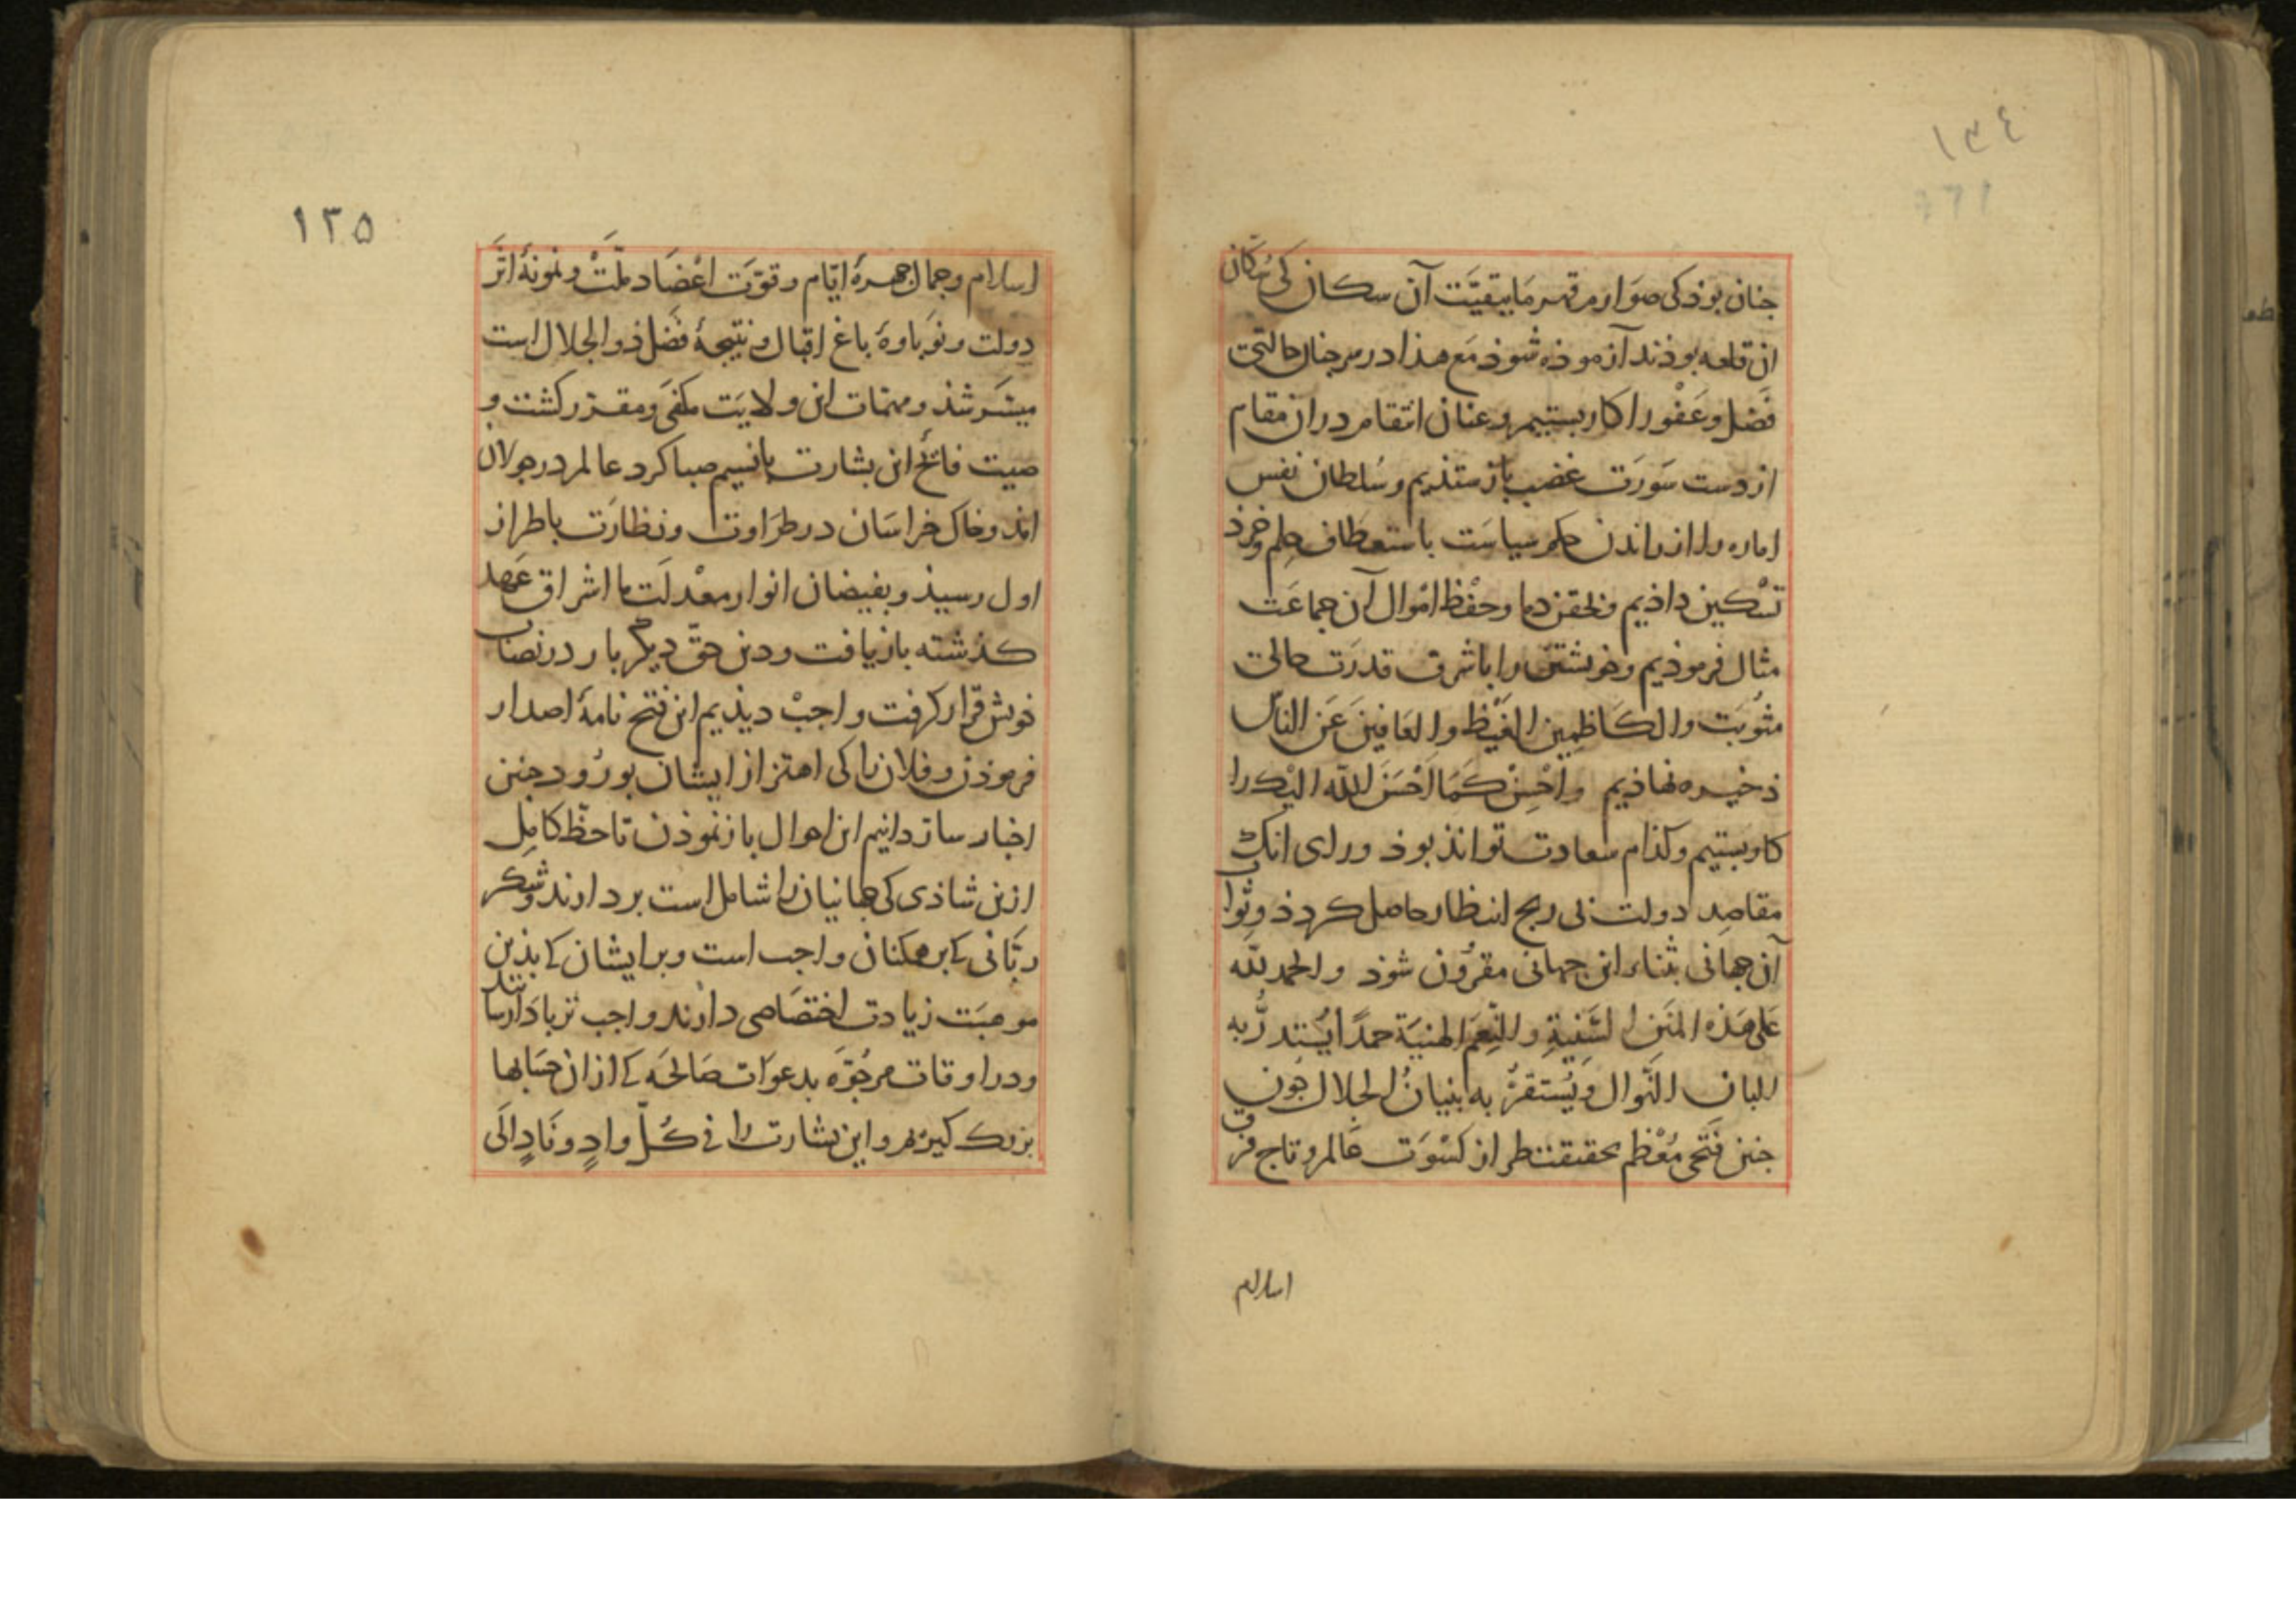 ١٣٤
جنان بوذ کی صوارم قهر ما ببقیّت آن سکان کی سکان
ان قلعه بوذند آزموذه شوذ مع هذا در سر جنان حالتی
فضل و عفو را کار بستیم و عنان انتقام در ان مقام
از دست سَورَت غضب باز ستذیم و سُلطان نفس
اماره را از راندن حکم سیاست باستعطاف حلم و خرذ
تسْکین داذیم و بحقن دما و حفْظ امْوال آن جماعَت
مثال فرموذیم و خویشتن را با شرف قدرَت حالی
مثوبَت والکَاظِمین الغَیْظ والعَافینَ عَن الناس
ذخیره نهاذیم واَحْسِنْ کَمَا اَحْسَنَ الله الیْک را
کار بستیم و کذام سعادت تواند بوذ ورای انک
مقاصِد دولت بی رنج انتظار حاصل کردذ و ثواب
آن جهانی بثناء این جهانی مقرُون شوذ والحمد لله
عَلی هَذه المنَن السَّنیةِ والنِّعَم الهنیَة حمدًا یُستدرُّ به
البان النّوال وَیُستقرُّ به بنیانُ الجلال جون
جنین فَتحی مُعْظم بحقیقت طراز کسْوَت عالم و تاج فرق
اسلام
١٣٥
اسلام و جمال جهرهٔ ایّام و قوّت اعْضَاد ملّتْ و نمونهٔ اثَر
دولت و نوَباوهٔ باغ اقبال و نتیجهٔ فَضْل ذو الجلال است
میسَّر شذ و مهمّات این ولایَت مکفی و مقرّر کشت و
صیت فائح این بشارت با نسیم صبا کرد عالم در جولان
امذ و خاک خراسَان در طرَاوت و نظارَت با طراز
اول رسیذ و بفیضان انوار معْدلَت ما اشراق عَهد
کذشته باز یافت و دین حقّ دیکر بار در نصاب
خویش قرار کرفت واجبْ دیذیم این فتح نامهٔ اصدار
فرموذن و فلان را کی اهتزاز ایشان بورُود جنین
اخبار سارّ دانیم این احوال باز نموذن تا حظّ کامِل
ازین شاذی کی جهانیان را شامل است بردارند و شکر
ربّانی کے بر همکنان واجب است و بر ایشان کے بذین
موهبَت زیادت اختصَاصی دارند واجب تر باداء رسانند
و در اوقات مرجُوَّه بدعوَات صَالحَه کے از ان حسَابها
بزرک کیریم و این بشارت را فی کُلّ وادٍ و نَادٍ الَی